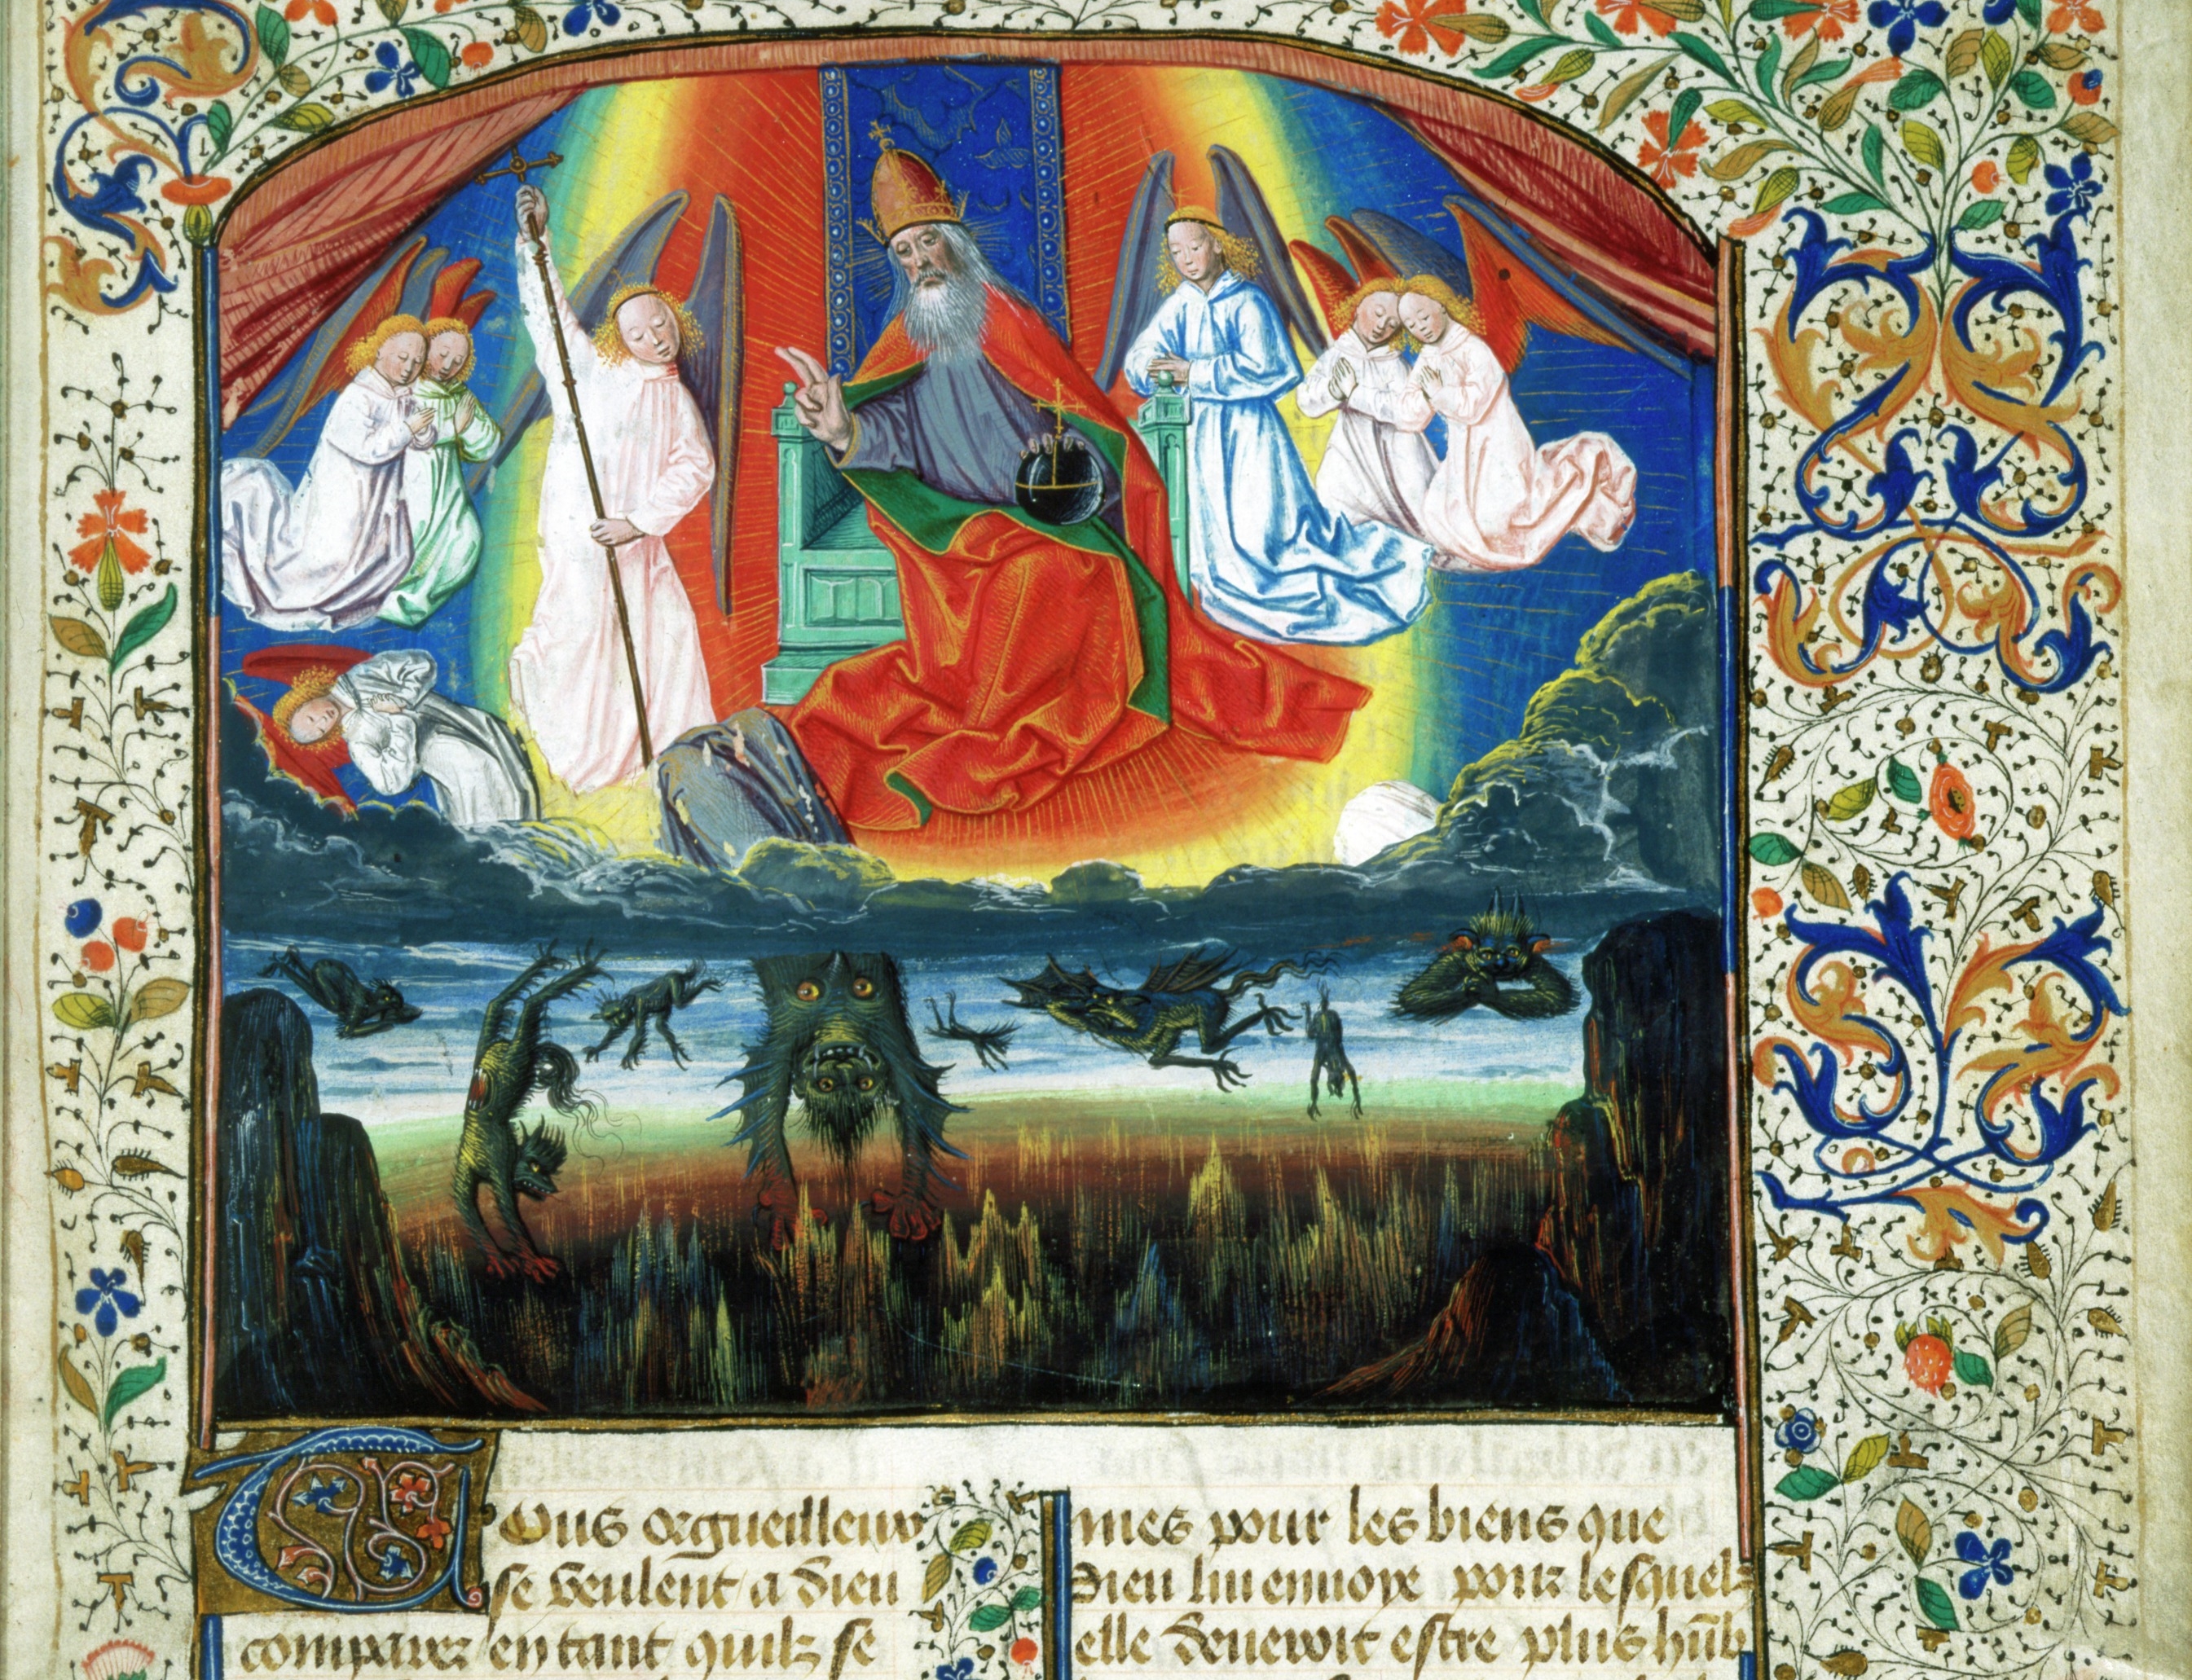 Tous orgueilleux
se veulent a dieu
comparer en tant quilz se
mes pour les biens que
Dieu lui envoye pour lesquelz
elle devewit estre plus hūb